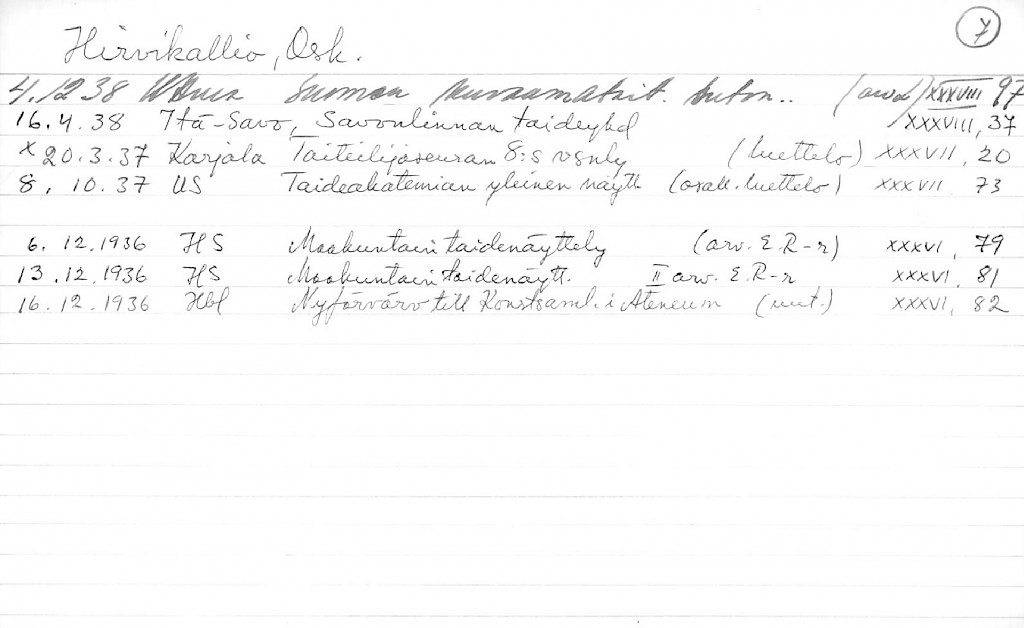 7
Hirvikallio, Osk.
4.12 38 Suomen (arv.) XXXVIII 97
16.4.38 Itä-Savo, Savonlinnan taideyhd XXXVIII, 37
x 20.3.37 Karjala Taiteilijaseuran 8:s vsnly (luettelo) XXXVII, 20
8, 10.37 US Taideakatemian yleinen näytt. (osall. luettelo) XXXVII 73
6. 12.1936 HS Maakuntain taidenäyttely (arv. E.R-r) XXXVI, 79
13.12.1936 HS Maakuntain taidenäytt. II arv. E.R-r XXXVI, 81
16.12.1936 Hbl Nyförvärv till Konstsaml. i Ateneum (uut.) XXXVI, 82